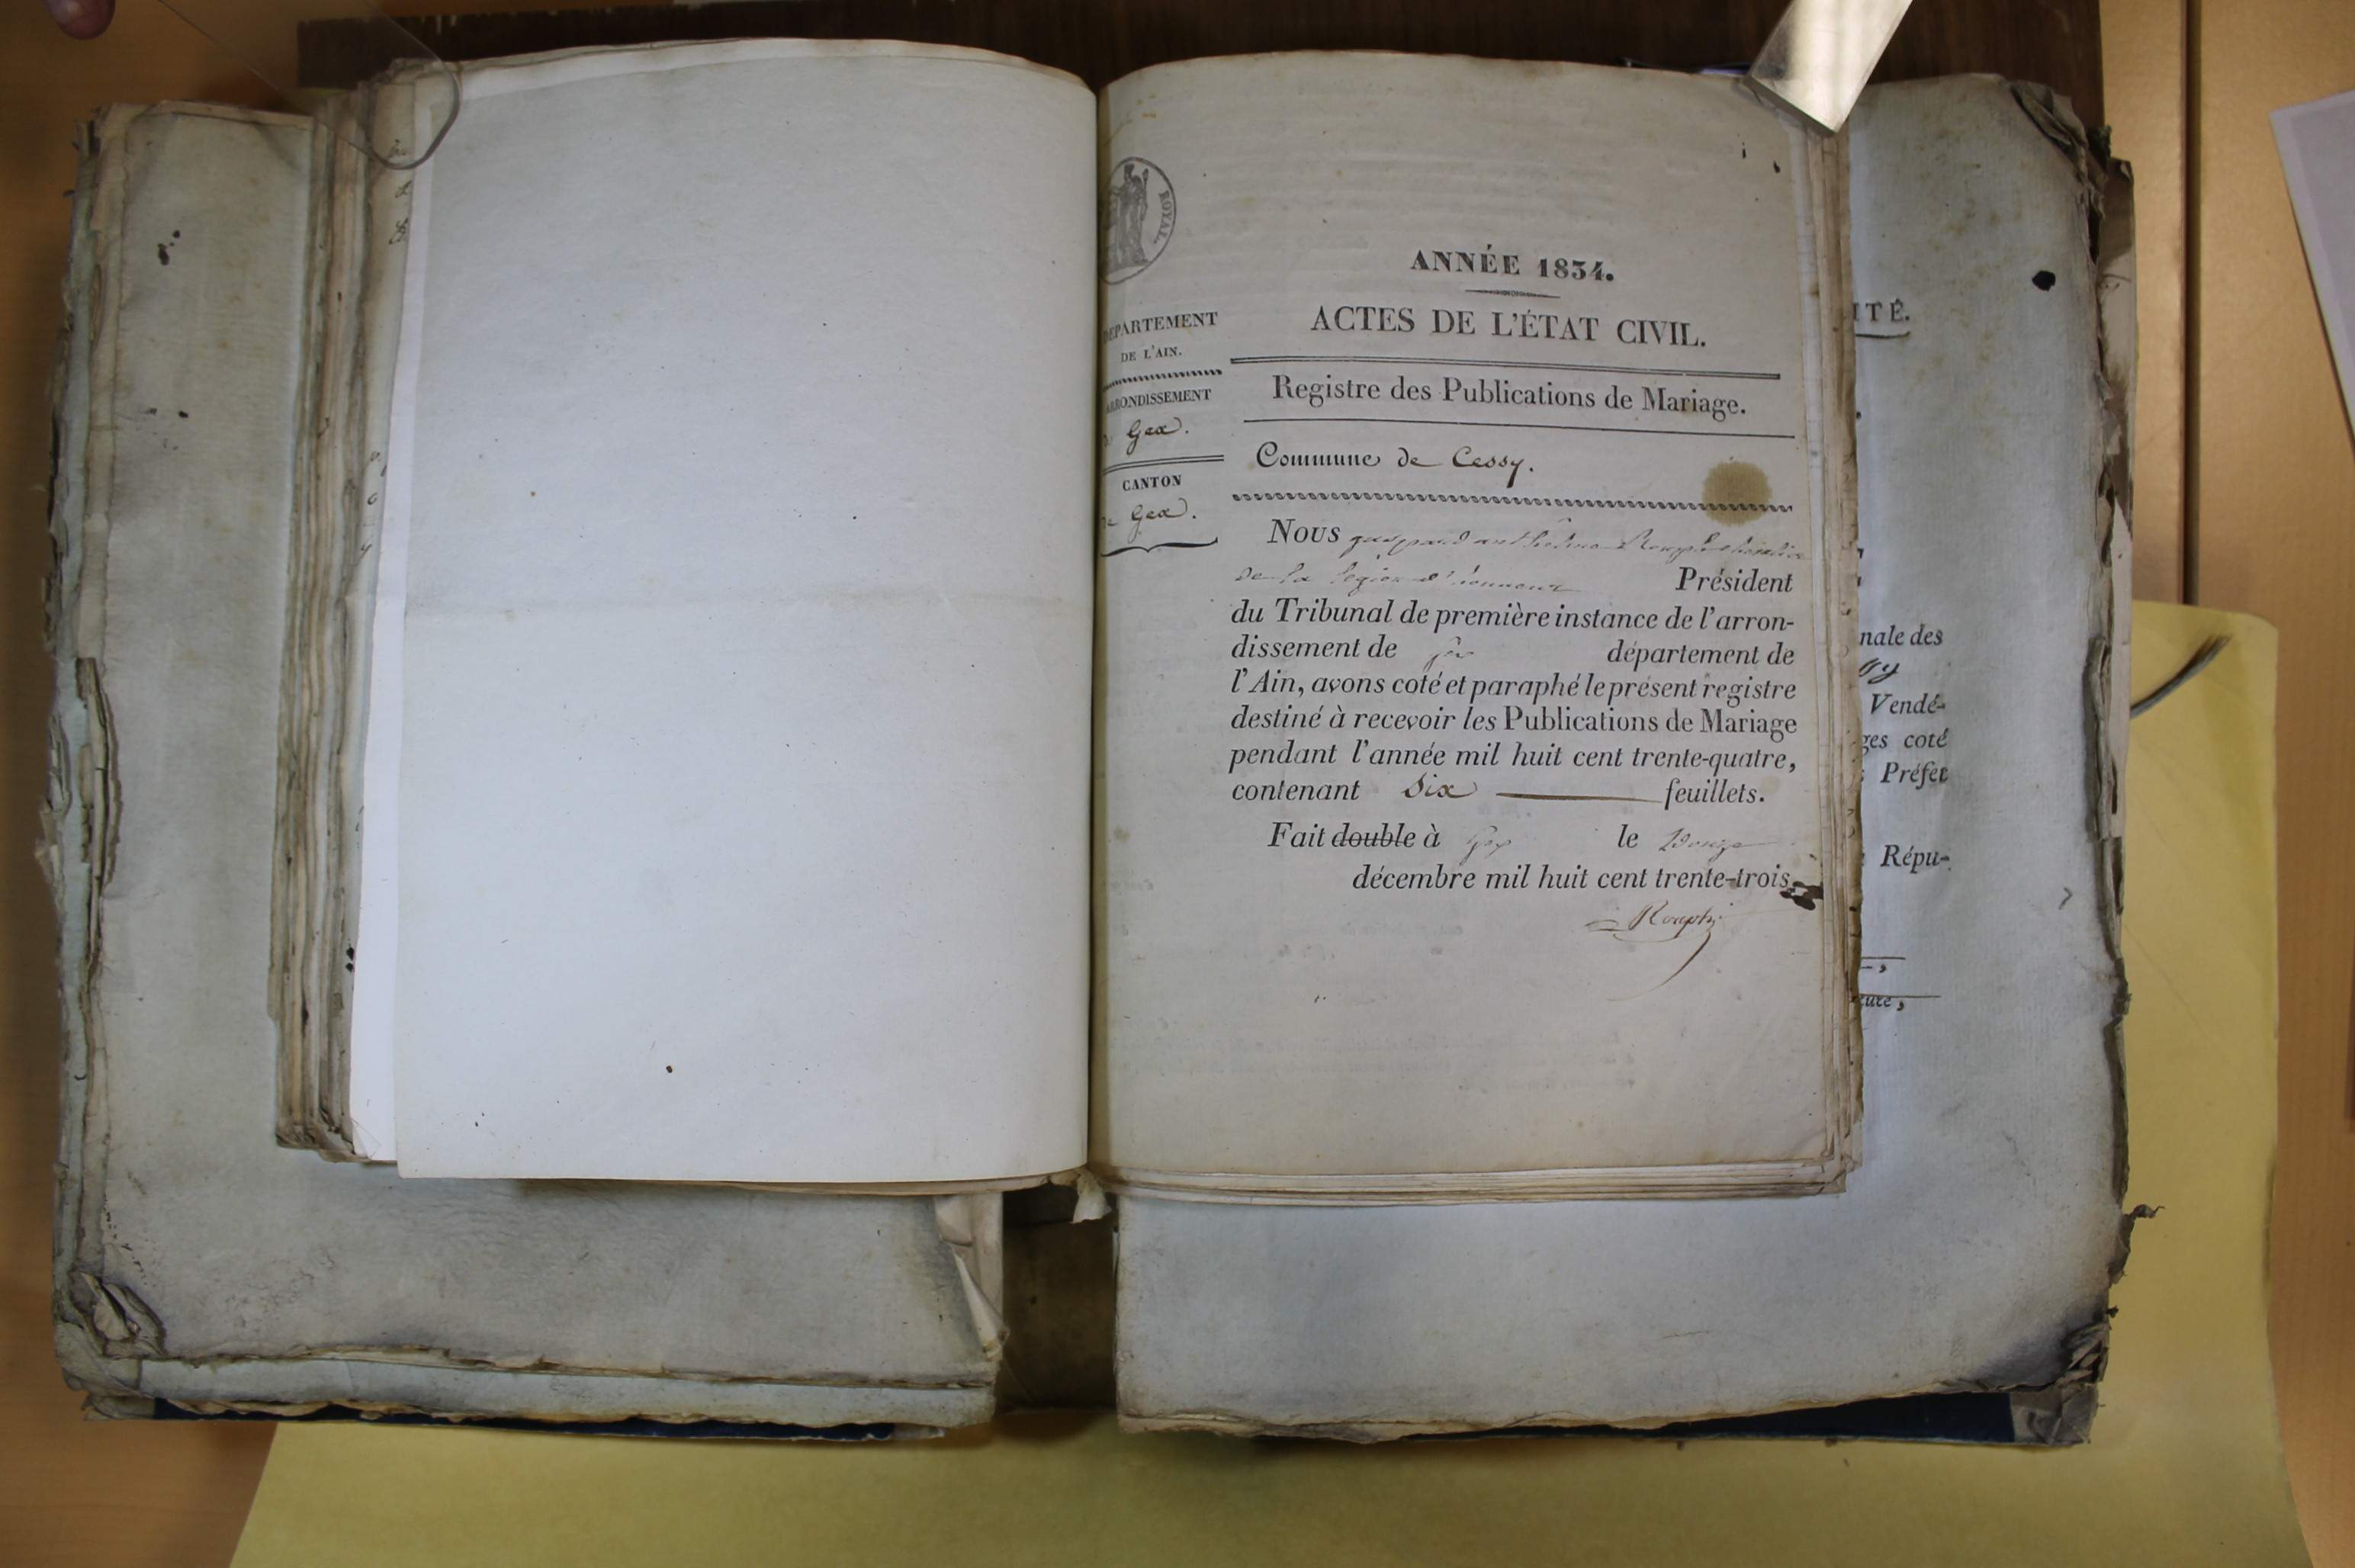 ROYAL.
ANNÉE 1834.
ACTES DE L'ÉTAT CIVIL.
Registre des Publications de Mariage.
Commune de Cessy.
DÉPARTEMENT
DE L'AIN.
ARRONDISSEMENT
de Gex.
CANTON
de Gex.
Nous
de la légion d'honneur Président
du Tribunal de première instance de l'arron-
dissement de Gex département de
l'Ain, avons coté et paraphé le présent registre
destiné à recevoir les Publications de Mariage
pendant l'année mil huit cent trente-quatre,
contenant Six feuillets.
Fait double à Gex le Douze
décembre mil huit cent trente-trois.
Rouph
ITÉ.
nale des
Vendé-
ges coté
Préfet
Répu-
ture,